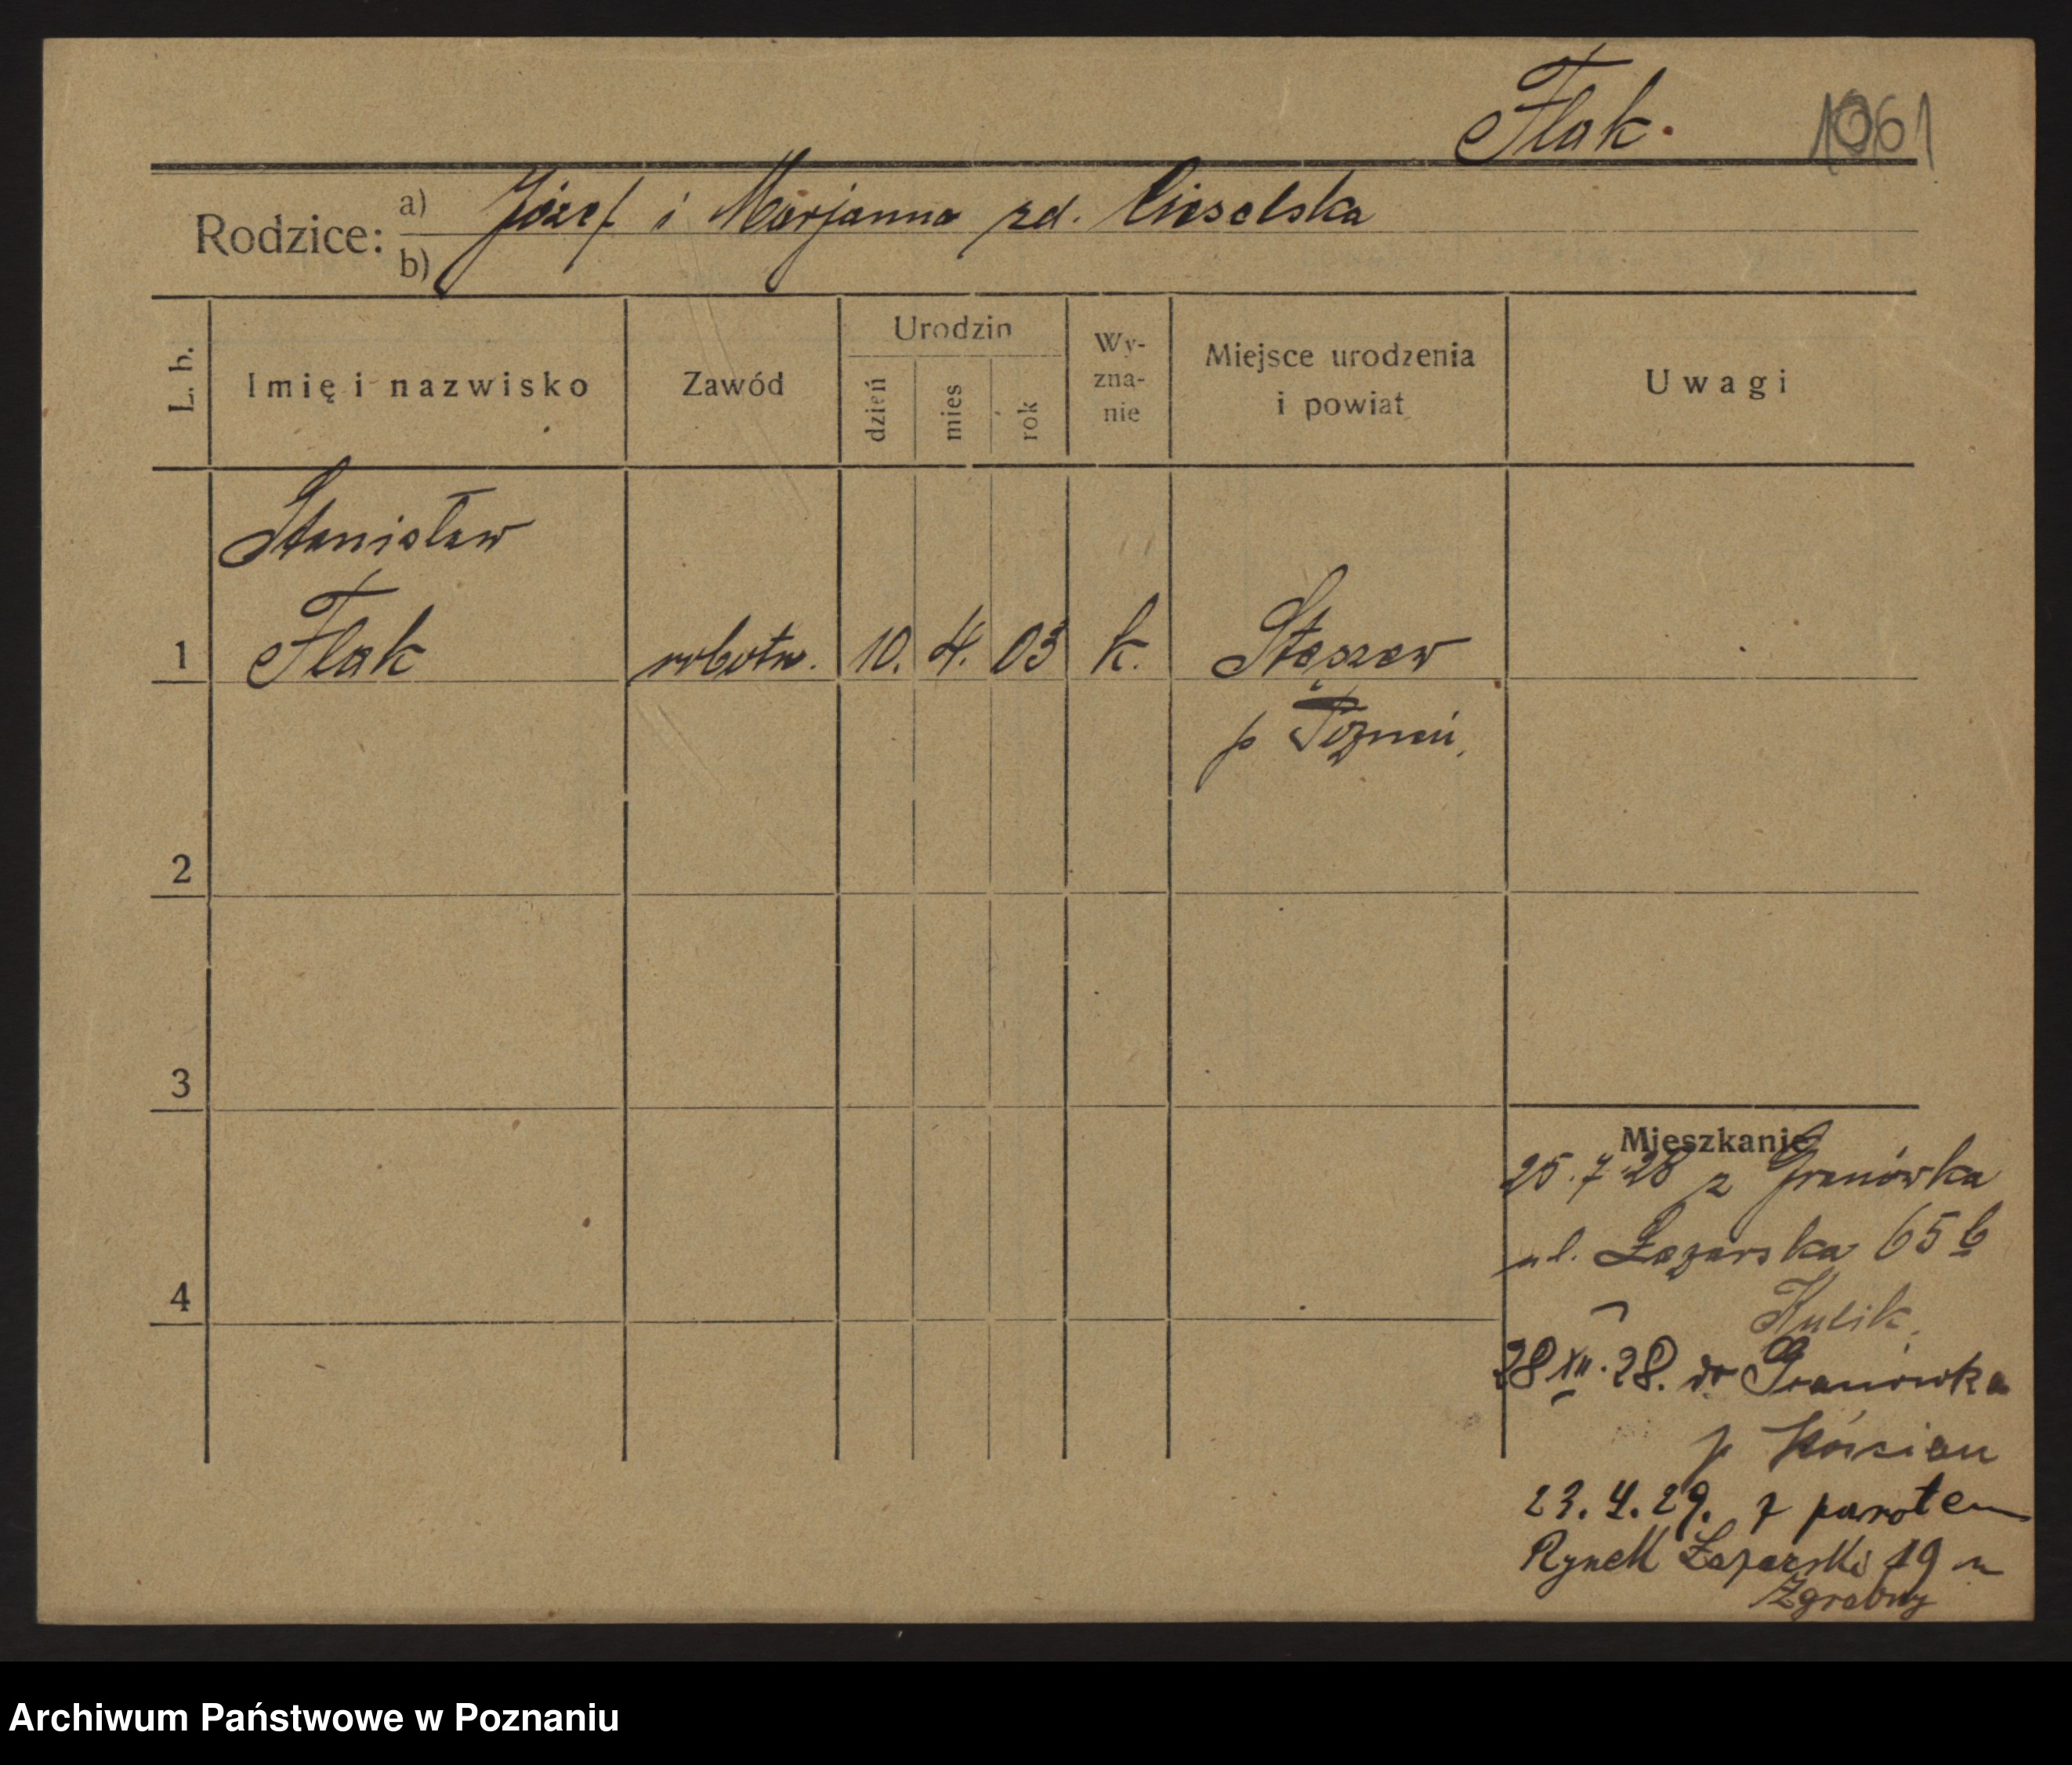 Flak. 1061
Rodzice: a) Józef i Marjanna zd. Cieselska
b)
L. b. Imię i nazwisko Zawód Urodzin dzień mies rok Wy-zna-nie Miejsce urodzenia i powiat Uwagi
Stanisław
1 Flak robotn. 10. 4. 03 k. Stęszew
p Poznań,
2
3
Mieszkanie
25.7.28 z Granówka
ul. Łazarska 65 b
4 Kulik.
28 XII. 28. do Granówka
p Kościan
23. 4. 29. z powrotem
Rynek Łazarski 19 u
Zgrabny
Archiwum Państwowe w Poznaniu